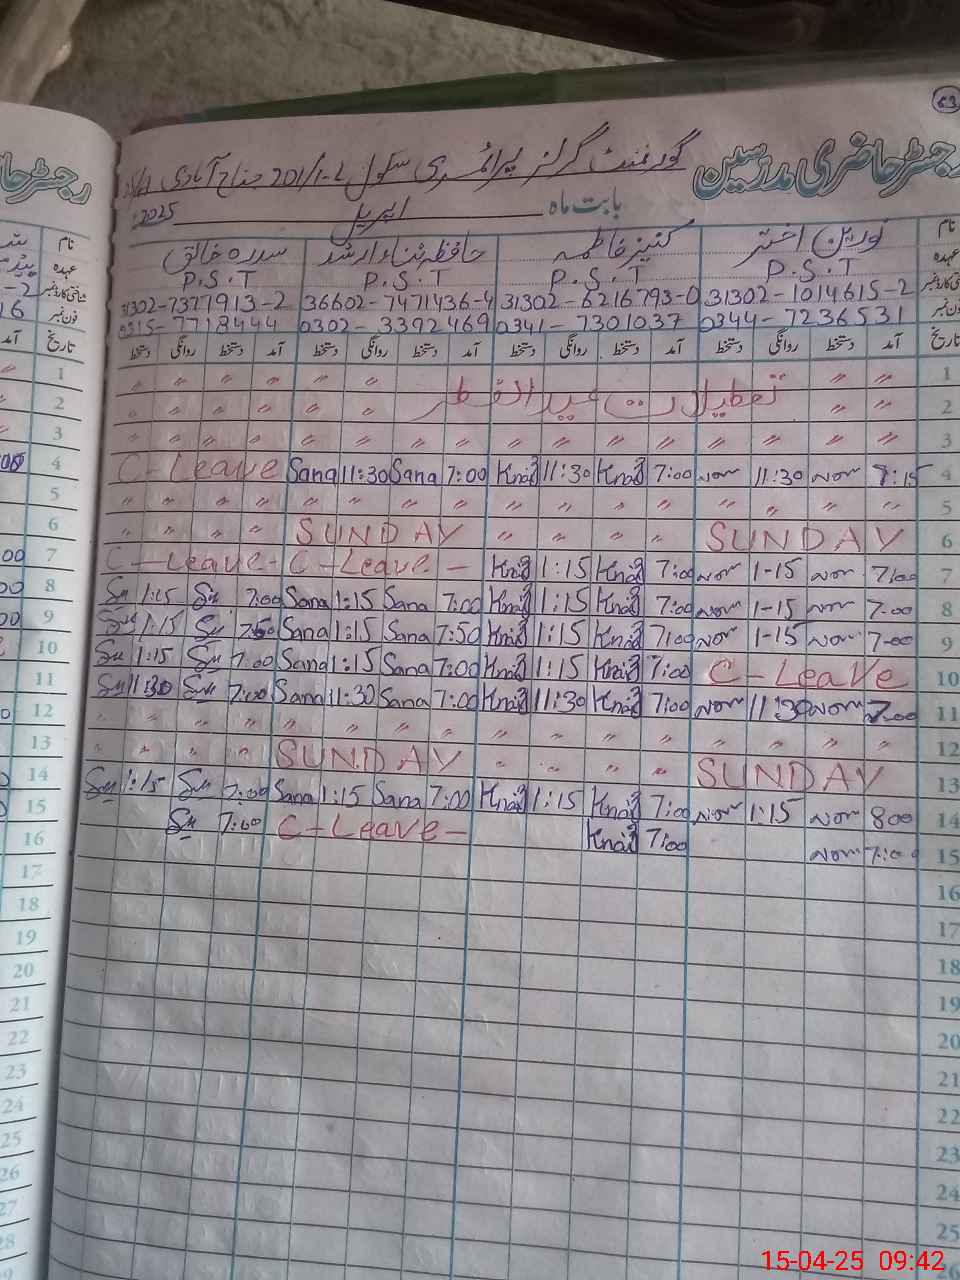 63
رجسٹر حاضری مدرسین
گورنمنٹ گرلز پرائمری سکول 201/1-L جناح آبادی
بابت ماہ اپریل 2025
نام نورین اختر کنیز فاطمہ حافظہ ثناء ارشد سدرہ خالق
عہدہ P.S.T P.S.T P.S.T P.S.T
شناختی کارڈ نمبر 31302-1014615-2 31302-6216793-0 36602-7471436-4 31302-7377913-2
فون نمبر 0344-7236531 0341-7301037 0302-3392469 0315-7718444
تاریخ آمد دستخط روانگی دستخط آمد دستخط روانگی دستخط آمد دستخط روانگی دستخط آمد دستخط روانگی دستخط
1 〃 〃 〃 〃 〃 〃 〃 〃
2 〃 〃 تعطیلات عید الفطر 〃 〃 〃 〃 〃 〃
3 〃 〃 〃 〃 〃 〃 〃 〃 〃 〃 〃 〃 〃 〃 〃 〃
C-Leave Sana 11:30 Sana 7:00 Kniz 11:30 Kniz 7:00 Nor 11:30 Nor 7:15 4
5 〃 〃 〃 〃 〃 〃 〃 〃 〃 〃 〃 〃 〃 〃 〃 〃
〃 〃 〃 〃 SUNDAY 〃 〃 〃 〃 SUNDAY 6
C-Leave- C-Leave- Kniz 1:15 Kniz 7:00 Nor 1-15 Nor 7:00 7
Su 1:15 Su 7:00 Sana 1:15 Sana 7:00 Kniz 1:15 Kniz 7:00 Nor 1-15 Nor 7:00 8
Su 1:15 Su 7:50 Sana 1:15 Sana 7:50 Kniz 1:15 Kniz 7:00 Nor 1-15 Nor 7:00 9
Su 1:15 Su 7:00 Sana 1:15 Sana 7:00 Kniz 1:15 Kniz 7:00 C-Leave 10
Su 11:30 Su 7:00 Sana 11:30 Sana 7:00 Kniz 11:30 Kniz 7:00 Nor 11:30 Nor 7:00 11
12 〃 〃 〃 〃 〃 〃 〃 〃 〃 〃 〃 〃 〃 〃 〃 〃
〃 〃 〃 〃 SUNDAY 〃 〃 〃 〃 SUNDAY 13
Su 1:15 Su 7:00 Sana 1:15 Sana 7:00 Kniz 1:15 Kniz 7:00 Nor 1:15 Nor 8:00 14
Su 7:00 C-Leave- Kniz 7:00 Nor 7:00 15
16
17
18
19
20
21
22
23
24
25
26
15-04-25 09:42